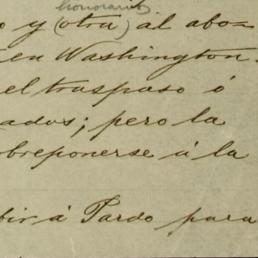 honorarios
o y (otra) al abo=
en Washington.
el traspaso ó
ados; pero la
obreponerse á la
bir á Pardo para